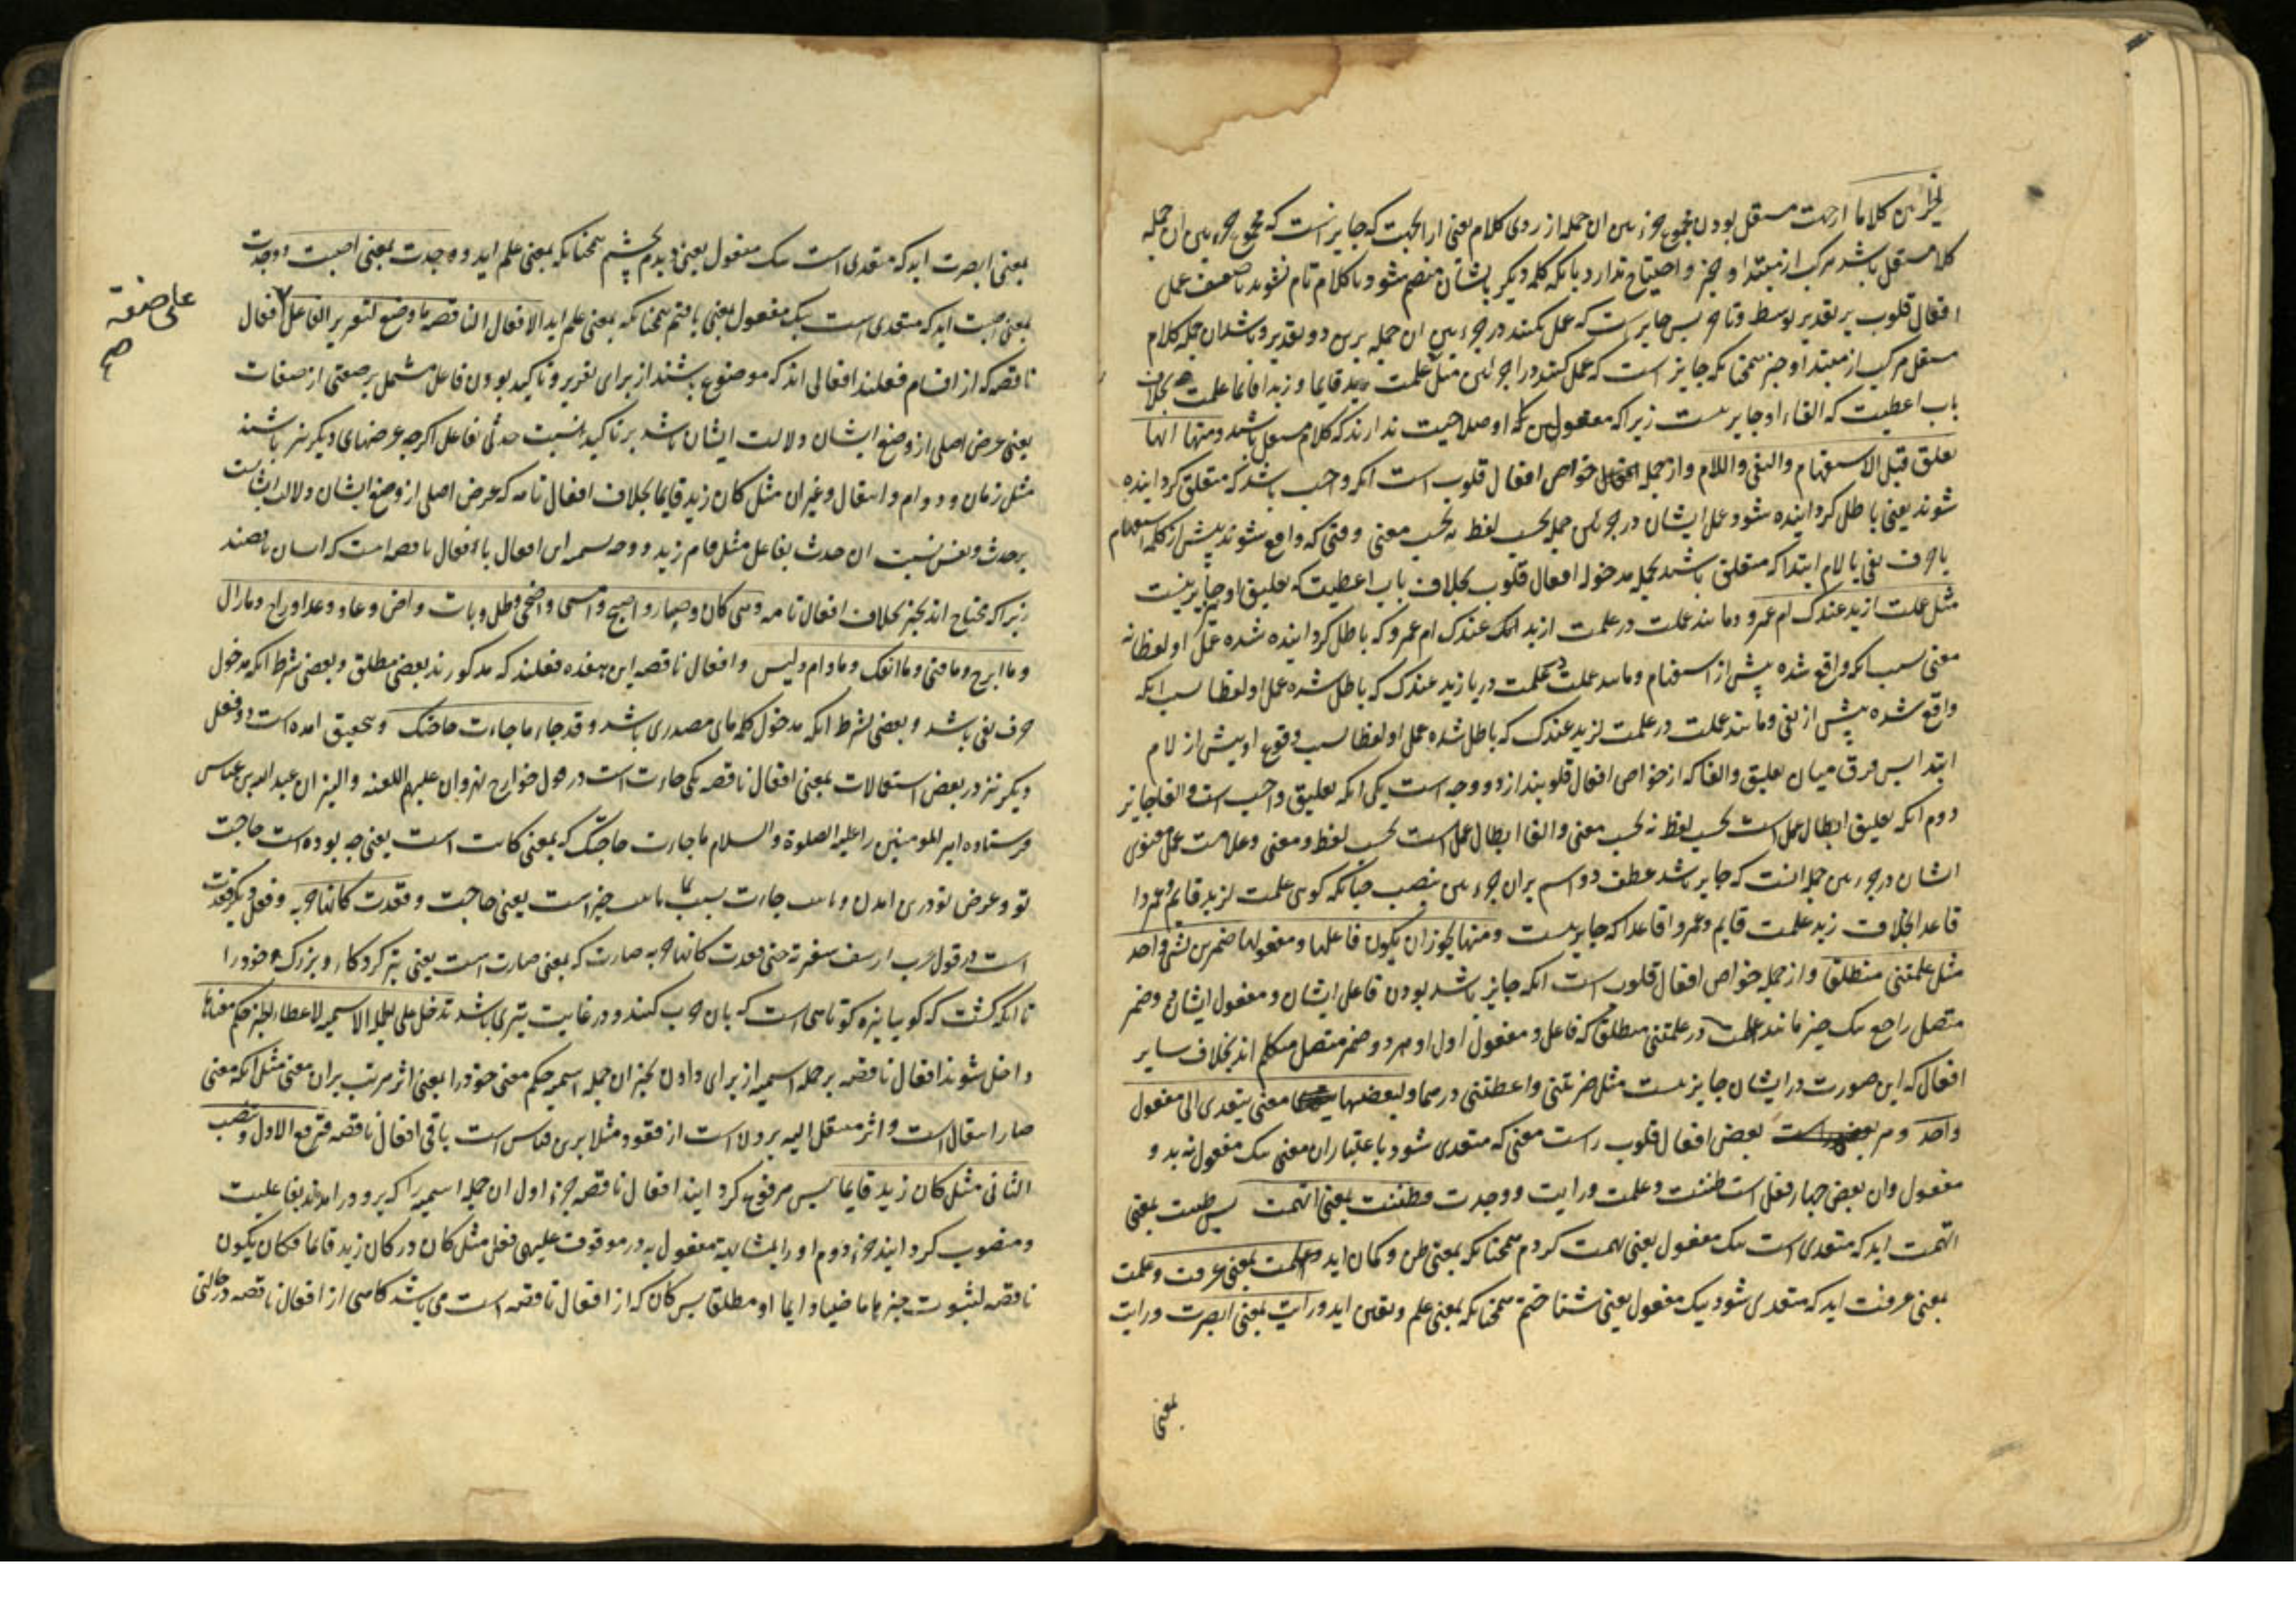 الجزئین کلاما از جهت مستقل بودن مجموع جزءین ان جمله از روی کلام یعنی از انجهت که جایز است که مجموع جزءین ان جمله
کلام مستقل باشد مرکب از مبتدا و خبر و احتیاج ندارد بانکه کلمه دیکر بایشان منضم شود تا کلام تام شوند با ضعف عمل
افعال قلوب بر تقدیر توسط و تاخر پس جایز است که عمل نکنند در جزءین ان جمله برین دو تقدیر و باشد ان جمله کلام
مستقل مرکب از مبتدا و خبر همچنانکه جایز است که عمل کنند در اجزائین مثل علمت زید قایما و زیدا قائما علمت بخلاف
باب اعطیت که الغاء او جایز نیست زیرا که مفعولین او صلاحیت ندارند که کلام مستقل باشند ومنها انها
تعلق قبل الاستفهام والنفی واللام و از جمله خواص افعال قلوب است انکه واجب باشد که متعلق کردانیده
شوند یعنی باطل کردانیده شود عمل ایشان در جزئین جمله بحسب لفظ نه بحسب معنی وقتی که واقع شوند پیش از کلمه استفهام
یا حرف نفی یا لام ابتدا که متعلق باشد بجمله مدخوله افعال قلوب بخلاف باب اعطیت که تعلیق او جایز نیست
مثل علمت ازید عندک ام عمرو و مانند علمت در علمت ازید عندک ام عمرو که باطل کردانیده شده عمل او لفظا نه
معنی بسبب انکه واقع شده پیش از استفهام و مانند علمت در علمت ما زید عندک که باطل شده عمل او لفظا بسبب انکه
واقع شده پیش از نفی و مانند علمت در علمت لزید عندک که باطل شده عمل او لفظا بسبب وقوع او پیش از لام
ابتدا پس فرق میان تعلیق و الغا که از خواص افعال قلوبند از دو وجه است یکی انکه تعلیق واجب است و الغا جایز
دوم انکه تعلیق ابطال عمل است بحسب لفظ نه بحسب معنی و الغا ابطال عمل است بحسب لفظ و معنی و علامت عمل معنوی
ایشان در جزءین جمله انست که جایز باشد عطف دو اسم بران جزءین بنصب چنانکه کوئی علمت لزید قایم و عمروا
قاعدا بخلاف زید علمت قایم و عمروا قاعدا که جایز نیست ومنها یجوز ان یکون فاعلها ومفعولها ضمیرین لشئ واحد
مثل علمتنی منطلقا و از جمله خواص افعال قلوب است انکه جایز باشد بودن فاعل ایشان و مفعول ایشان دو ضمیر
متصل راجع بیک چیز مانند علمت در علمتنی منطلقا که فاعل و مفعول اول او هر دو ضمیر متصل متکلم اند بخلاف سایر
افعال که این صورت در ایشان جایز نیست مثل ضربتنی و اعطیتنی درهما ولبعضها معنی یتعدی الی مفعول
واحد و مر بعض افعال قلوب راست معنی که متعدی شود باعتبار ان معنی بیک مفعول نه بدو
مفعول وان بعض چهار فعل است ظننت وعلمت ورایت ووجدت فظننت بمعنی اتهمت پس ظننت بمعنی
اتهمت اید که متعدی است بیک مفعول یعنی تهمت کردم همچنانکه بمعنی ظن و کمان اید وعلمت بمعنی عرفت وعلمت
بمعنی عرفت اید که متعدی شود بیک مفعول یعنی شناختم همچنانکه بمعنی علم و یقین اید ورایت بمعنی ابصرت ورایت
بمعنی
بمعنی ابصرت اید که متعدی است بیک مفعول یعنی دیدم بچشم همچنانکه بمعنی علم اید ووجدت بمعنی اصبت ووجدت
بمعنی اصبت اید که متعدی است بیک مفعول یعنی یافتم همچنانکه بمعنی علم اید الافعال الناقصه ما وضع لتقریر الفاعل افعال
علی صفة
صح
ناقصه که از اقسام فعلند افعالی اند که موضوع باشند از برای تقریر و تاکید بودن فاعل مشتمل بر صفتی از صفات
یعنی غرض اصلی از وضع ایشان دلالت ایشان باشد بر تاکید نسبت حدثی بفاعل اکرچه غرضهای دیکر نیز باشند
مثل زمان و دوام و انتقال و غیر ان مثل کان زید قایما بخلاف افعال تامه که غرض اصلی از وضع ایشان دلالت ایشانست
بر حدث ونفس نسبت ان حدث بفاعل مثل قام زید و وجه تسمیه این افعال بافعال ناقصه انست که ایشان ناقصند
زیرا که محتاج اند بخبر بخلاف افعال تامه وهی کان وصار واصبح وامسی واضحی وظل وبات واض وعاد وغدا وراح ومازال
وما برح وما فتی وما انفک وما دام ولیس و افعال ناقصه این هفده فعلند که مذکورند بعضی مطلق و بعضی بشرط انکه مدخول
حرف نفی باشد و بعضی بشرط انکه مدخول کلمه مای مصدری باشد وقد جاء ما جاءت حاجتک و بتحقیق امده است دو فعل
دیکر نیز در بعض استعمالات بمعنی افعال ناقصه یکی جاءت است در قول خوارج نهروان علیهم اللعنه والنیران عبد الله بن عباس
فرستاده امیر المومنین را علیه الصلوة والسلام ما جاءت حاجتک که بمعنی کانت است یعنی چه بوده است حاجت
تو و غرض تو درین امدن و ما جاءت خبر است یعنی حاجت وقعدت کانها حربه و فعل دیکر قعدت
است در قول عرب ارهف شفرته حتی قعدت کانها حربه صارت که بمعنی صارت است یعنی تیز کرد کارد بزرک خود را
تا انکه کشت که کویا نیزه کوتاهی است که بان حرب کنند و در غایت تیزی باشد تدخل علی الجمله الاسمیه لاعطاء الخبر حکم معناها
داخل شوند افعال ناقصه بر جمله اسمیه از برای دادن بخبر ان جمله اسمیه حکم معنی خود را یعنی اثر مرتب بران معنی مثل انکه معنی
صار انتقال است و اثر منتقل الیه بر ولا است از فقود مثلا برین قیاس است باقی افعال ناقصه فترفع الاول وتنصب
الثانی مثل کان زید قایما پس مرفوع کردانید افعال ناقصه جزء اول ان جمله اسمیه را که برو در امدند بفاعلیت
و منصوب کردانید جزء دوم او را بمشابهة مفعول به در موقوف علیهی فعل مثل کان در کان زید قائما فکان یکون
ناقصه لثبوت خبرها ماضیا دایما او مطلقا پس کان که از افعال ناقصه است می باشد کاهی از افعال ناقصه در حالتی